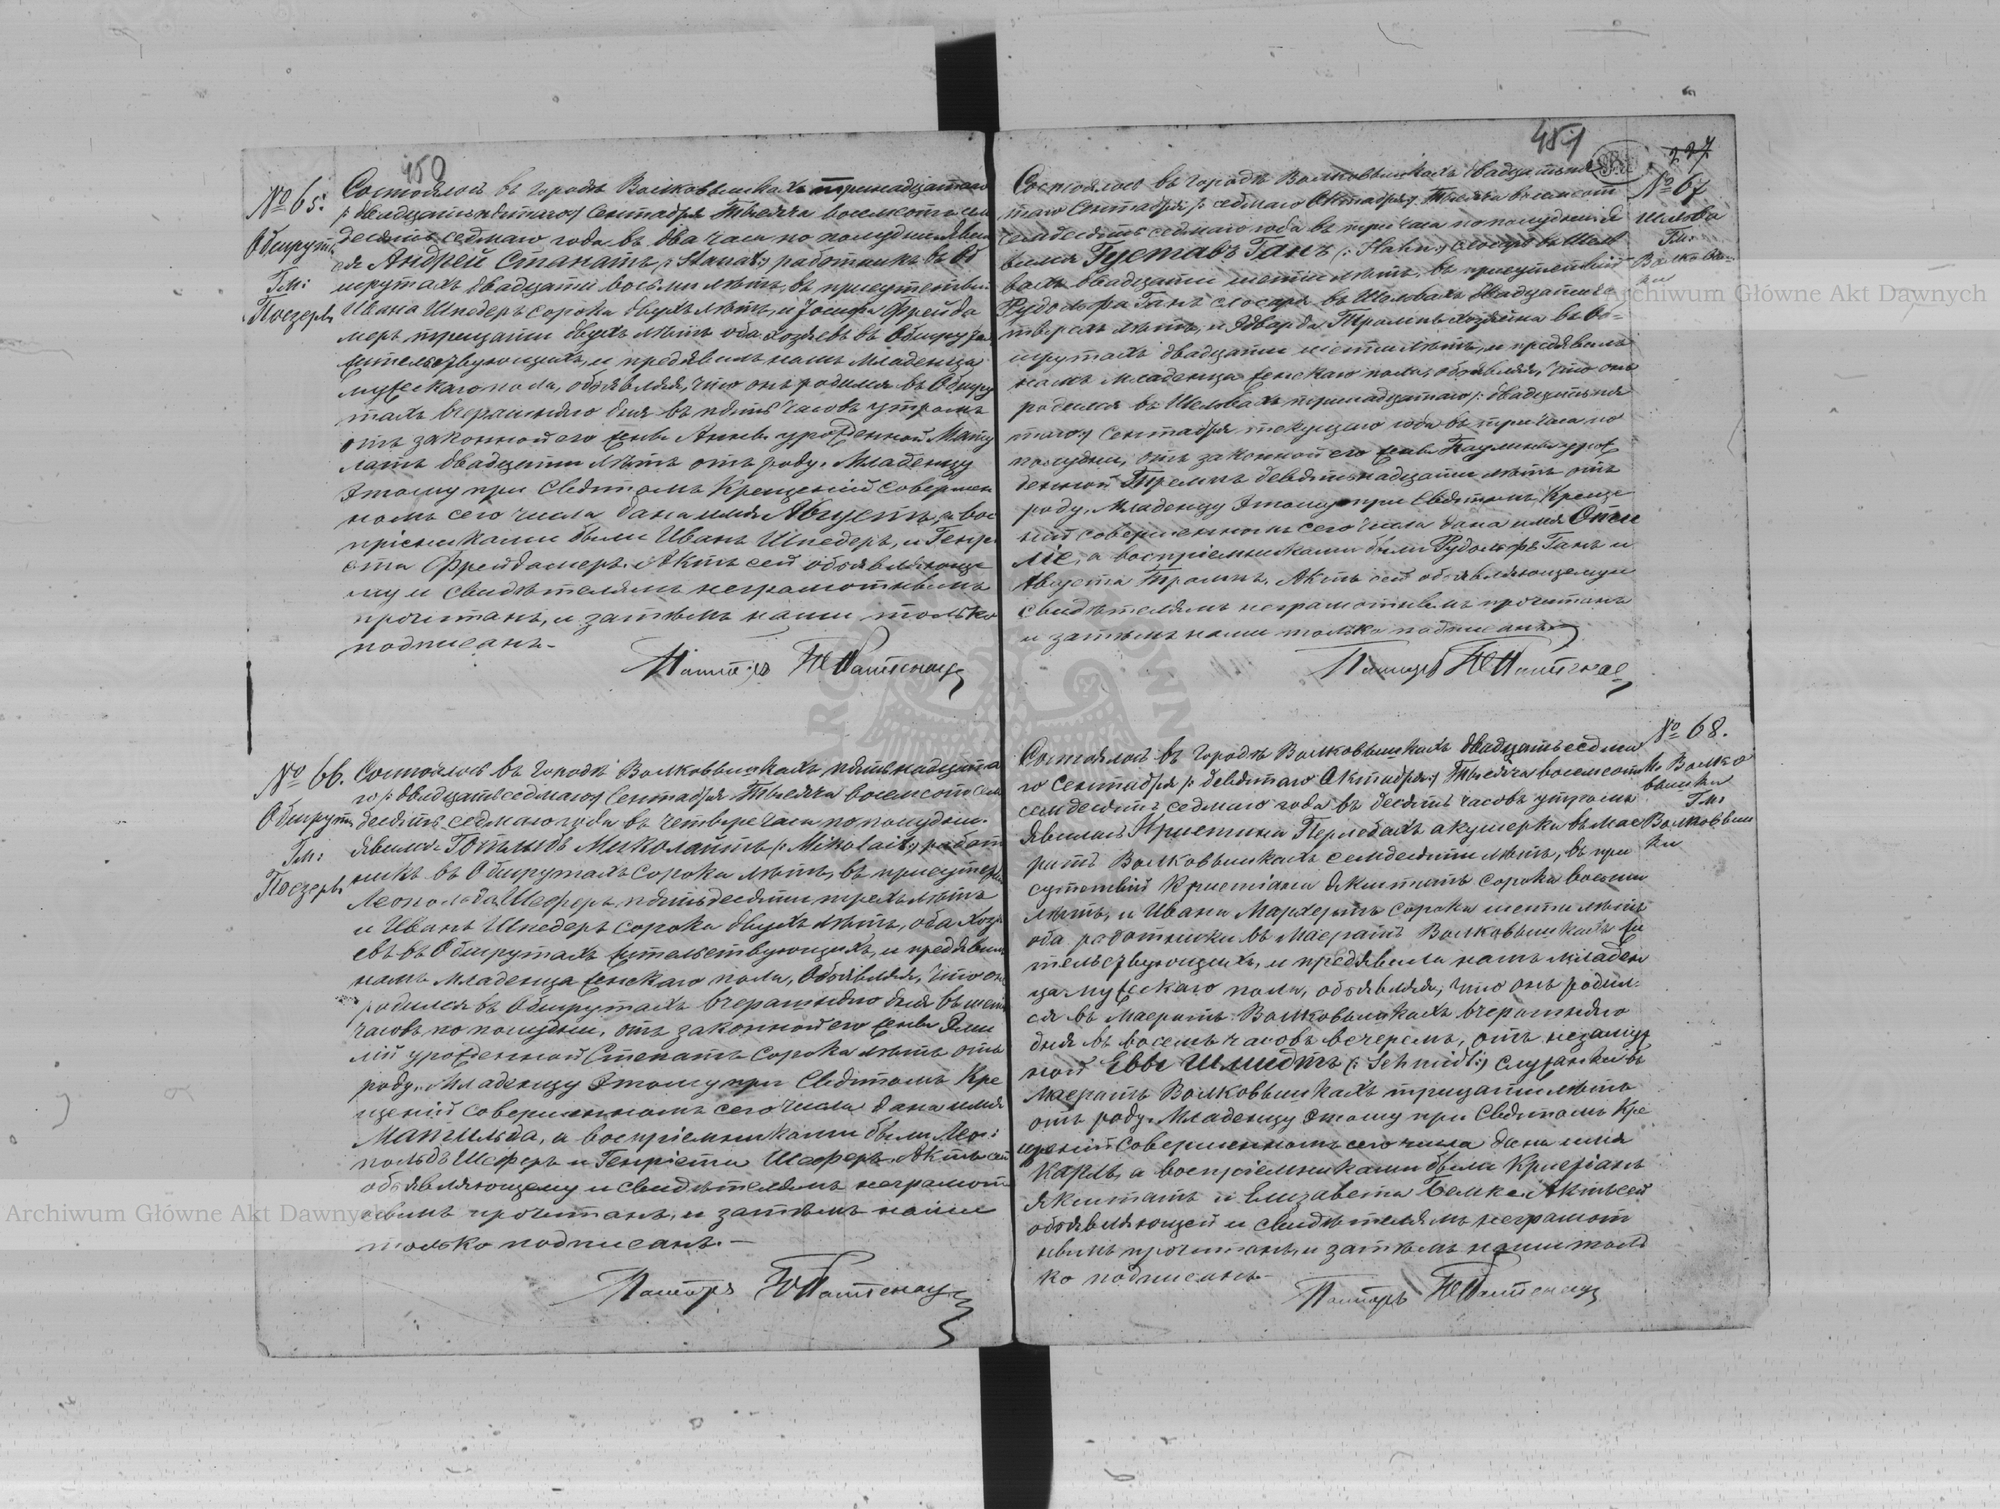 450
№ 65.
Обшрут.
Гм:
Поезеръ
Состоялось въ городѣ Волковышкахъ тринадцатаго
/: двадцать пятаго:/ Сентября Тысяча восемсотъ сем
десятъ седмаго года въ два часа по полудни. Явил
ся Андрей Станатъ (: Stanat:) работникъ въ Об
шрутахъ двадцати восьми лѣтъ, въ присутствіи
Ивана Шнедеръ сорока двухъ лѣтъ, и Іосифа Фрейда
меръ тридцати двухъ лѣтъ оба хозяевъ въ Обшрутахъ
жительствующихъ, и предявилъ намъ младенца
мужескаго пола, объявляя, что онъ родился въ Обшру
тахъ вчерашняго дня въ пять часовъ утромъ
отъ законной его жены Анны урожденной Мату
латъ двадцати лѣтъ отъ роду. Младенцу
этому при Святомъ Крещеніи совершен
номъ сего числа дано имя Августъ, а вос
пріемниками были Иванъ Шнедеръ, и Генрі
ета Фрейдамеръ. Актъ сей объявляюще
му и свидѣтелямъ неграмотнымъ
прочитанъ, и затѣмъ нами только
подписанъ.-
Пасторъ
№ 66.
Обшрут.
Гм:
Поезеръ
Состоялось въ городѣ Волковышкахъ пятнадцата
го /: двадцать седмаго:/ Сентября Тысяча восемсотъ сем
десятъ седмаго года въ четыре часа по полудни.
Явился Готлибъ Миколайтъ (: Mikolait:) работ
никъ въ Обшрутахъ сорока лѣтъ, въ присутствіи
Леопольда Шеферъ, пятьдесяти трехъ лѣтъ
и Иванъ Шнедеръ сорока двухъ лѣтъ, оба хозя
евъ въ Обшрутахъ жительствующихъ, и предявилъ
намъ младенца женскаго пола, объявляя, что онъ
родился въ Обшрутахъ вчерашняго дня въ шесть
часовъ по полудни, отъ законной его жены Эми
лій урожденной Степатъ сорока лѣтъ отъ
роду. Младенцу этому при Святомъ Кре
щеній совершенномъ сего числа дано имя
Матильда, а воспріемниками были Лео:
польдъ Шеферъ и Генріета Шеферъ. Актъ сей
объявляющему и свидѣтелямъ неграмот
нымъ прочитанъ, и затѣмъ нами
только подписанъ.-
Пасторъ
451
227
№ 67
Шлява
Гм:
Волковы=
ки
Состоялось въ городѣ Волковышкахъ двадцать пя
таго Сентября /: седмаго Октября:/ Тысяча восемсот
семдесятъ седмаго года въ три часа по полудни. Я
вился Густавъ Ганъ (: Hahn:) слосаръ въ Шля
вахъ двадцати шести лѣтъ, въ присутствіи
Рудольфа Ганъ слосаря въ Шлявахъ двадцати че
тырехъ лѣтъ, и Эдварда Тромпъ хозяина въ Об=
шрутахъ двадцати шести лѣтъ, и предявилъ
намъ младенца женскаго пола, объявляя, что онъ
родился въ Шлявахъ тринадцатаго /: двадцать пя
таго:/ Сентября текущаго года въ три часа по
полудни, отъ законной его жены Паулины урож
денной Тремпъ девятнадцати лѣтъ отъ
роду. Младенцу этому при Святомъ Креще
ній совершенномъ сего числа дано имя Оти
ліе, а воспріемниками были Рудольфъ Ганъ и
Августа Тромпъ. Актъ сей объявляющему и
свидѣтелямъ неграмотнымъ прочитанъ
и затѣмъ нами только подписанъ.
Пасторъ
№ 68.
М: Волко
вышки
Гм:
Волковыш
ки
Состоялось въ городѣ Волковышкахъ двадцать седма
го Сентября /: девятаго Октября:/ Тысяча восемсотъ
семдесятъ седмаго года въ десять часовъ утромъ
явилась Кристина Перлебахъ акушерка въ Мае
ратъ Волковышкахъ семдесяти лѣтъ, въ при
сутствій Кристіана Якштатъ сорока восьми
лѣтъ, и Ивана Мархертъ сорока шести лѣтъ
оба работники въ Маератъ Волковышкахъ жи
тельствующихъ, и предявила намъ младен
ца мужескаго пола, объявляя, что онъ родил=
ся въ Маератъ Волковышкахъ вчерашняго
дня въ восемь часовъ вечеромъ, отъ незамуж
ной Еввы Шмидтъ (: Schmidt:) служанки въ
Маератъ Волковышкахъ тридцати лѣтъ
отъ роду. Младенцу этому при Святомъ Кре
щеній совершенномъ сего числа дано имя
Карлъ, а воспріемниками были Кристіанъ
Якштатъ и Елизавета Белке. Актъ сей
объявляющей и свидѣтелямъ неграмот
нымъ прочитанъ, и затѣмъ нами толь
ко подписанъ.-
Пасторъ
Archiwum Główne Akt Dawnych
Archiwum Główne Akt Dawnych